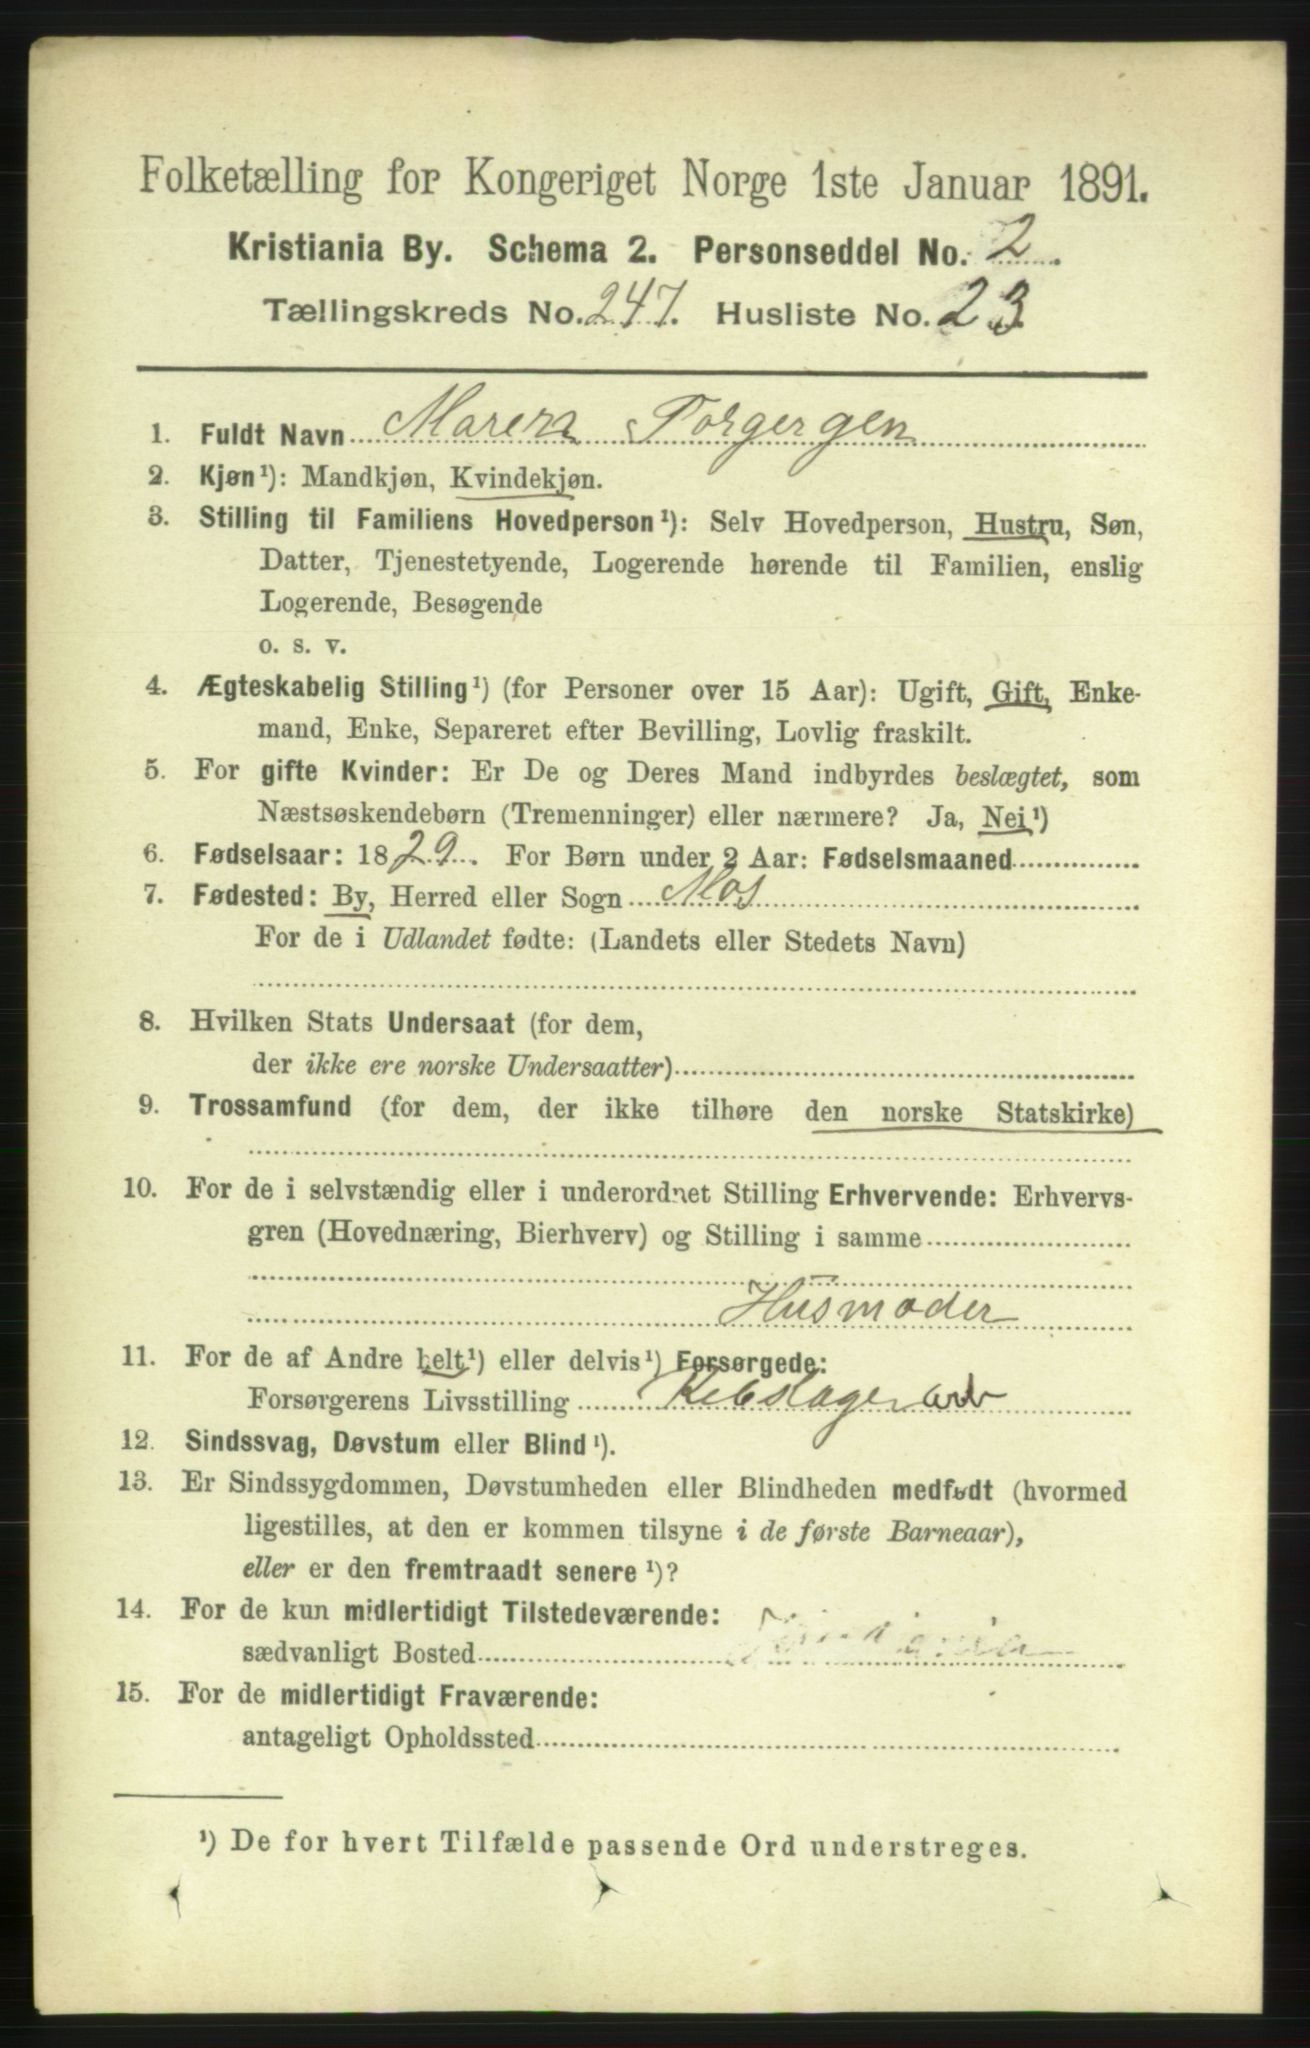 Folketælling for Kongeriget Norge 1ste Januar 1891.
Kristiania By. Schema 2. Personseddel No. 2.
Tællingskreds No. 247. Husliste No. 23
1. Fuldt Navn Maren Torgergen
2. Kjøn¹): Mandkjøn, Kvindekjøn.
3. Stilling til Familiens Hovedperson¹): Selv Hovedperson, Hustru, Søn,
Datter, Tjenestetyende, Logerende hørende til Familien, enslig
Logerende, Besøgende
o. s. v.
4. Ægteskabelig Stilling¹) (for Personer over 15 Aar): Ugift, Gift, Enke-
mand, Enke, Separeret efter Bevilling, Lovlig fraskilt.
5. For gifte Kvinder: Er De og Deres Mand indbyrdes beslægtet, som
Næstsøskendebørn (Tremenninger) eller nærmere? Ja, Nei¹)
6. Fødselsaar: 1829. For Børn under 2 Aar: Fødselsmaaned
7. Fødested: By, Herred eller Sogn Mos
For de i Udlandet fødte: (Landets eller Stedets Navn)
8. Hvilken Stats Undersaat (for dem,
der ikke ere norske Undersaatter)
9. Trossamfund (for dem, der ikke tilhøre den norske Statskirke)
10. For de i selvstændig eller i underordnet Stilling Erhvervende: Erhvervs-
gren (Hovednæring, Bierhverv) og Stilling i samme
Husmoder
11. For de af Andre helt¹) eller delvis¹) Forsørgede:
Forsørgerens Livsstilling Rebslager arb
12. Sindssvag, Døvstum eller Blind¹).
13. Er Sindssygdommen, Døvstumheden eller Blindheden medfødt (hvormed
ligestilles, at den er kommen tilsyne i de første Barneaar),
eller er den fremtraadt senere¹)?
14. For de kun midlertidigt Tilstedeværende:
sædvanligt Bosted
15. For de midlertidigt Fraværende:
antageligt Opholdssted
¹) De for hvert Tilfælde passende Ord understreges.